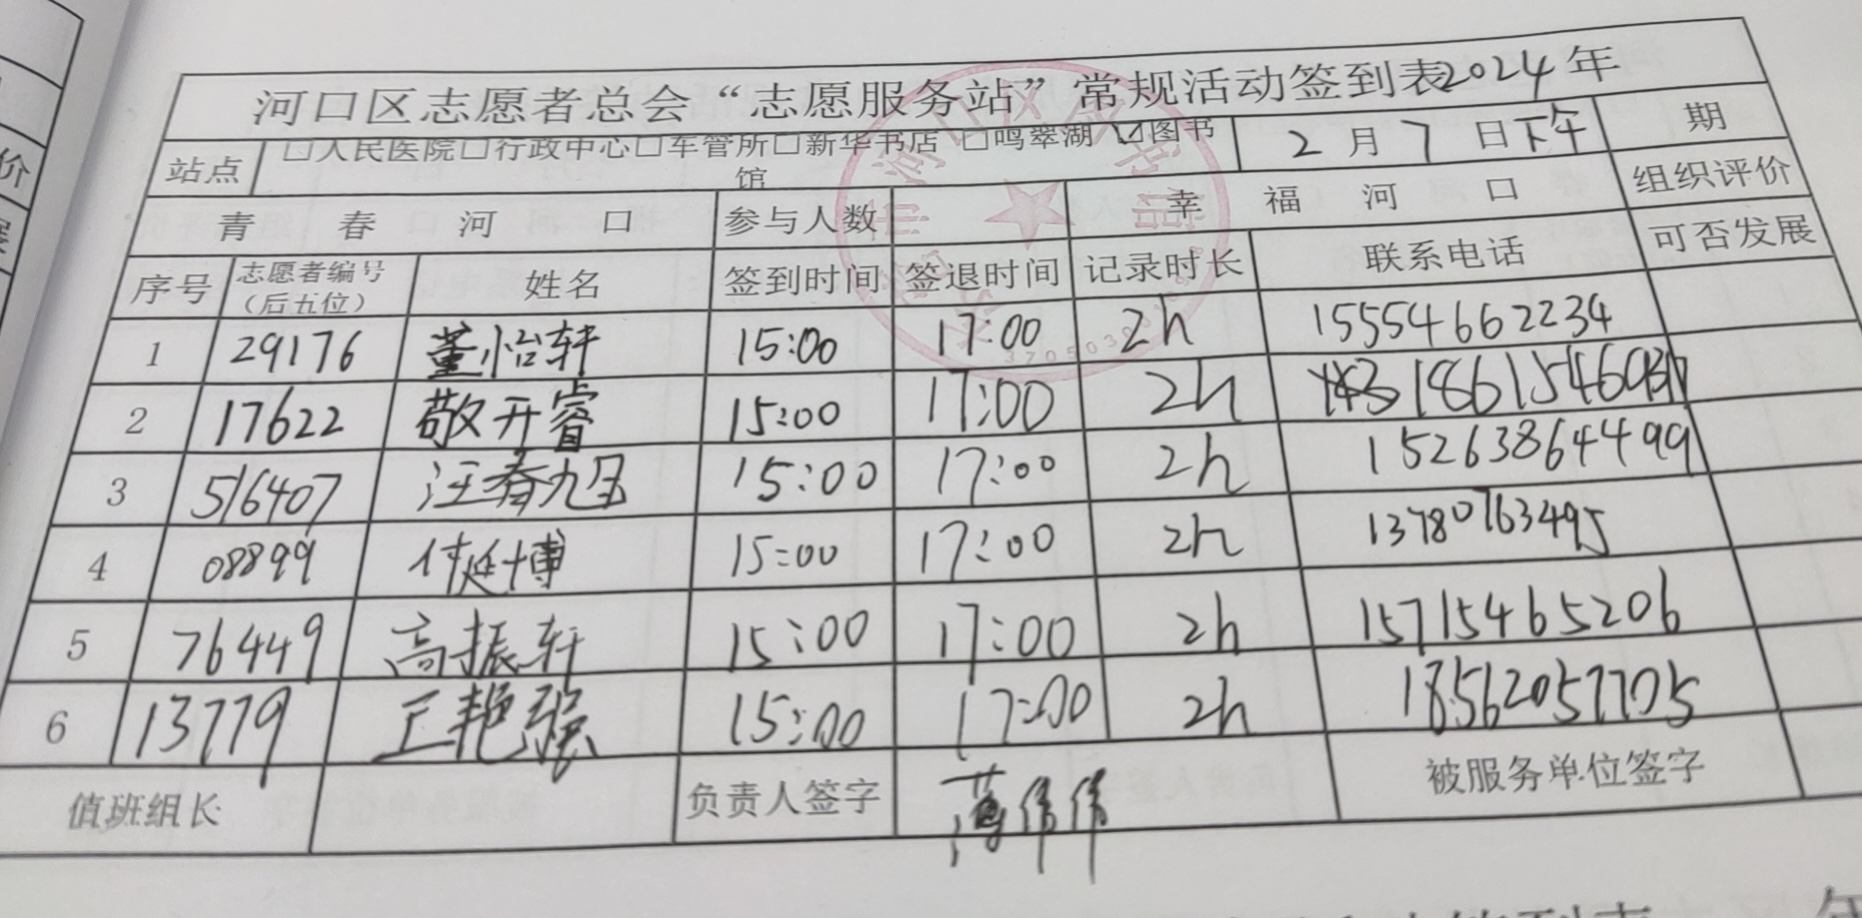 河口区志愿者总会“志愿服务站”常规活动签到表2024年
站点 □人民医院□行政中心□车管所□新华书店 □鸣翠湖 ☑图书馆 2月7日下午 期
青春河口 参与人数 幸福河口 组织评价
序号 志愿者编号（后五位） 姓名 签到时间 签退时间 记录时长 联系电话 可否发展
1 29176 董怡轩 15:00 17:00 2h 15554662234
2 17622 敬开睿 15:00 17:00 2h
3 516407 15:00 17:00 2h 15263864499
4 08899 付延博 15:00 17:00 2h 13780763495
5 76449 高振轩 15:00 17:00 2h 15715465206
6 13779 王艳强 15:00 17:00 2h 18562057705
值班组长 负责人签字 薄伟伟 被服务单位签字